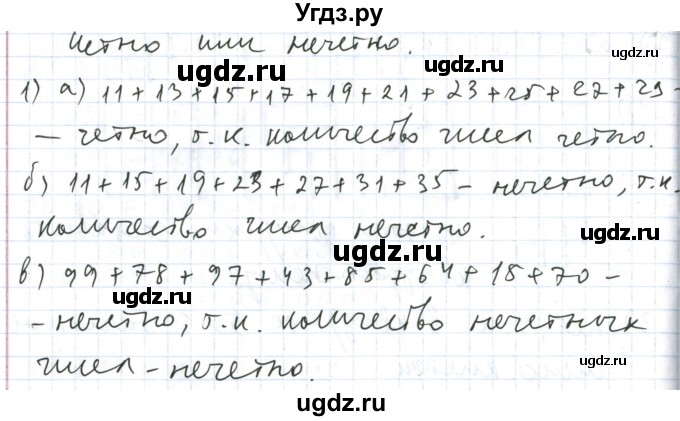 Угдз.ру
Четно или нечетно.
ugdz.ru
ugdz.ru
1) а) 11+13+15+17+19+21+23+25+27+29-
- четно, т.к. количество чисел четно.
ugdz.ru
б) 11+15+19+23+27+31+35 - нечетно, т.к.
количество чисел нечетно.
ugdz.ru
в) 99+78+97+43+85+64+15+70 -
ugdz.ru
ugdz.ru
- нечетно, т.к. количество нечетных
чисел - нечетно.
ugdz.ru
ugdz.ru